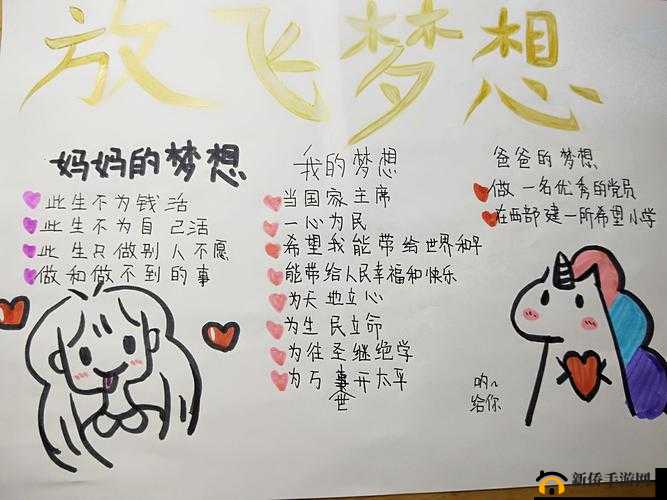 放飞梦想
妈妈的梦想
此生不为钱活
此生不为自己活
此生只做别人不愿
做和做不到的事
我的梦想
当国家主席
一心为民
希望我能带给世界和平
能带给人民幸福和快乐
为天地立心
为生民立命
为往圣继绝学
为万事开太平
世
爸爸的梦想
做一名优秀的党员
在西部建一所希望小学
呐~
给你
新侨手游网